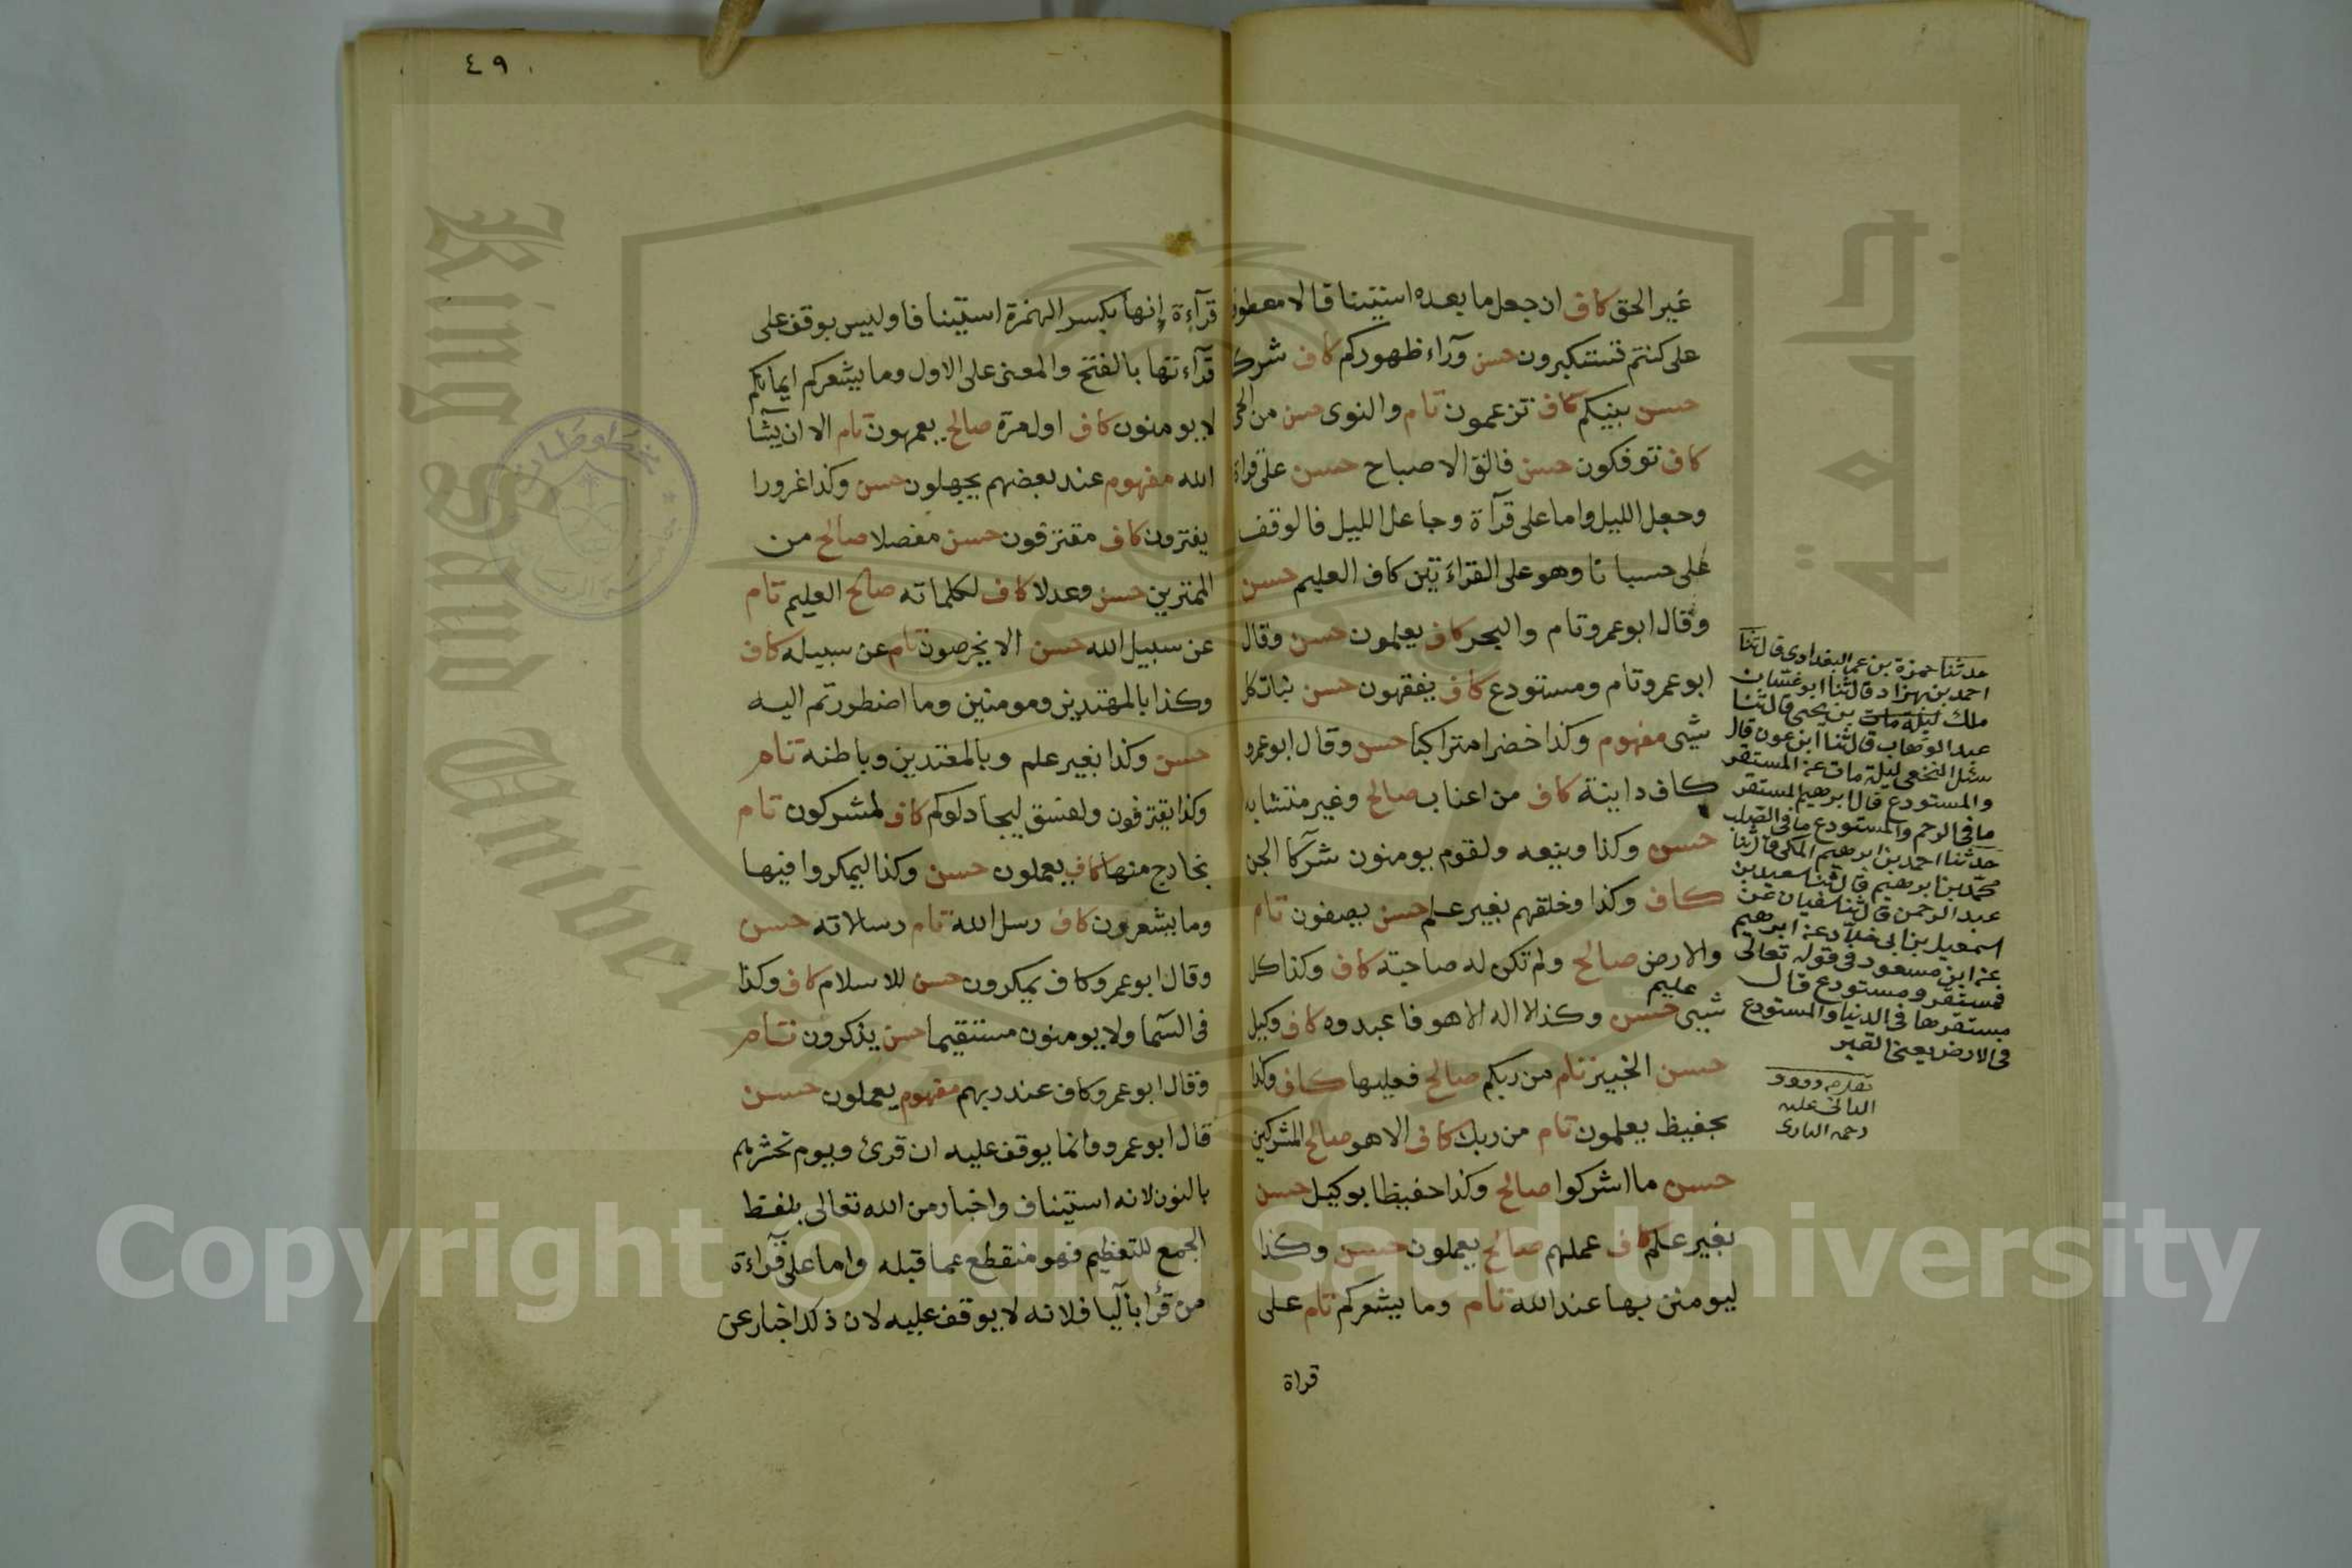 غير الحق كاف ان جعل ما بعده استينافا لا معطوفا
على كنتم تستكبرون حسن ورآء ظهوركم كاف شركؤا
حسن بينكم كاف تزعمون تام والنوى حسن من الحي
كاف توفكون حسن فالق الاصباح حسن على قراة
وجعل الليل واما على قرآة وجاعل الليل فالوقف
على حسبانا وهو على القراءتين كاف العليم حسن
وقال ابوعمرو تام والبحر كاف يعلمون حسن وقال
ابوعمرو تام ومستودع كاف يفقهون حسن نبات كل
شيى مفهوم وكذا خضرا متراكبا حسن وقال ابوعمرو
كاف دانية كاف من اعناب صالح وغير متشابه
حسن وكذا وينعه ولقوم يومنون شركآ الجن
كاف وكذا وخلقهم بغير علم حسن يصفون تام
والارض صالح ولم تكن له صاحبة كاف وكذا كل
عليم
شيى حسن وكذ لا اله الا هو فاعبدوه كاف وكيل
حسن الخبير تام من ربكم صالح فعليها كاف وكذا
بحفيظ يعلمون تام من ربك كاف الا هو صالح المشركين
حسن ما اشركوا صالح وكذا حفيظا بوكيل حسن
بغير علم كاف عملهم صالح يعملون حسن وكذا
ليومنن بها عند الله تام وما يشعركم تام على
قراة
حدثنا حمزة بن على البغدادى قال ثنا
احمد بن بهزاد قال ثنا ابو غسان
ملك ليلة مات بن يحيى قال ثنا
عبد الوهاب قال ثنا ابن عون قال
سئل النخعى ليلة مات عن المستقر
والمستودع قال ابرهيم المستقر
ما فى الرحم والمستودع ما فى الصلب
حدثنا احمد بن ابرهيم المكى قال ثنا
محمد بن ابرهيم قال ثنا سعيد بن
عبد الرحمن قال ثنا سفيان عن
اسمعيل بن ابى خالد عن ابرهيم
عن ابن مسعود فى قوله تعالى
فمستقر ومستودع قال
مستقرها فى الدنيا والمستودع
فى الارض يعنى القبر
الدانى عليه
رحمه البارى
٤٩
قرآءة إنها بكسر الهمزة استينافا وليس بوقف على
قرآءتها بالفتح والمعنى على الاول وما يشعركم ايمانكم
لا يومنون كاف اول مرة صالح يعمهون تام الا ان يشآ
الله مفهوم عند بعضهم يجهلون حسن وكذا غرورا
يفترون كاف مقترفون حسن مفصلا صالح من
الممترين حسن وعدلا كاف لكلماته صالح العليم تام
عن سبيل الله حسن الا يخرصون تام عن سبيله كاف
وكذا بالمهتدين ومومنين وما اضطررتم اليه
حسن وكذا بغير علم وبالمعتدين وباطنه تام
وكذا يقترفون ولفسق ليجادلوكم كاف لمشركون تام
بخارج منها كاف يعملون حسن وكذا ليمكروا فيها
وما يشعرون كاف رسل الله تام رسالاته حسن
وقال ابوعمرو كاف يمكرون حسن للاسلام كاف وكذا
فى السما ولا يومنون مستقيما حسن يذكرون تام
وقال ابوعمرو كاف عند ربهم مفهوم يعملون حسن
قال ابوعمرو وانما يوقف عليه ان قرئ ويوم نحشرهم
بالنون لانه استيناف واخبار من الله تعالى بلفظ
الجمع للتعظيم فهو منقطع عما قبله واما على قرآءة
من قرأ باليا فلانه لا يوقف عليه لان ذلك اخبار عن
King Saud University
جامعة
Copyright © King Saud University